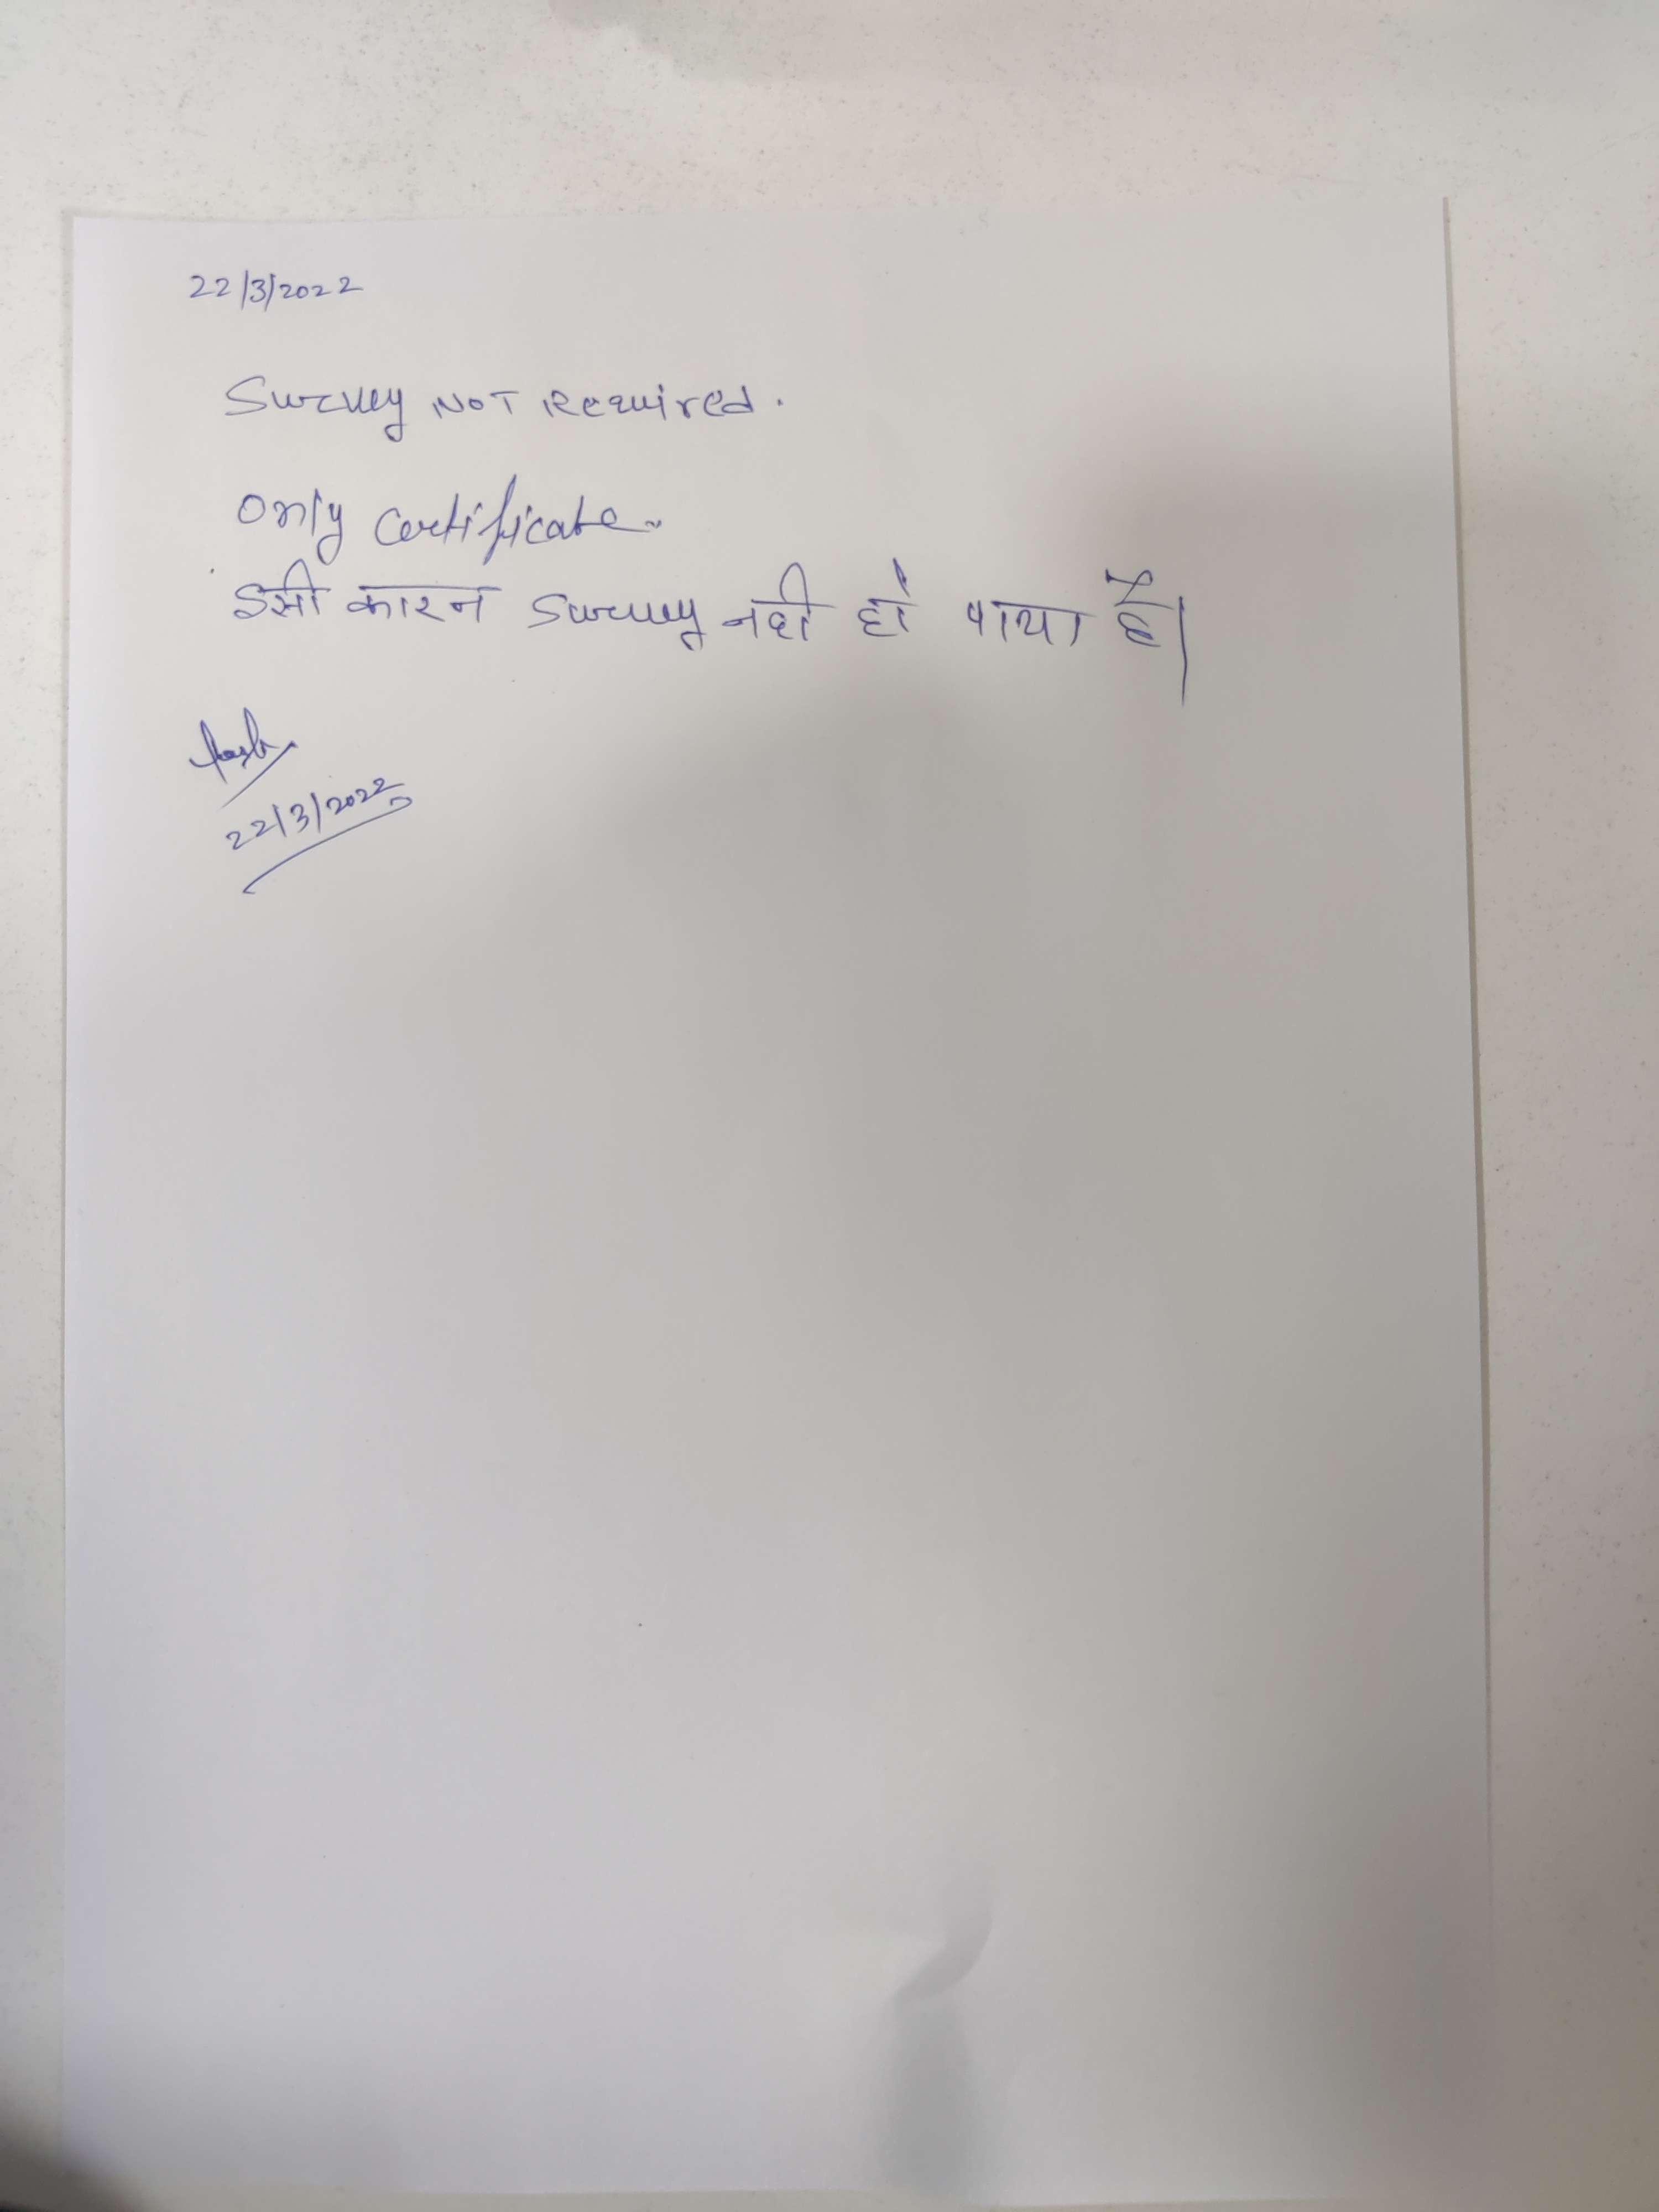 22/3/2022
Survey NOT Required.
Only Certificate.
इसी कारन Survey नही हो पाया है।
22/3/2022